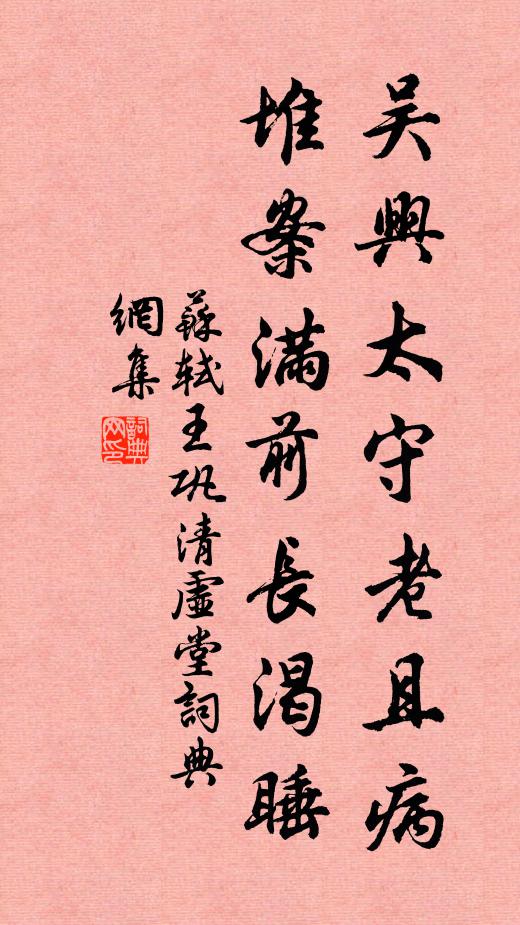 吴興太守老且病
堆案滿前長渴睡
蘇軾王巩清虛堂詞典
網集
詞典
网印